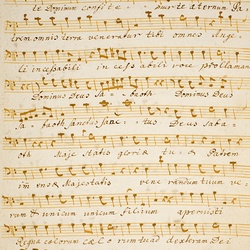 te Dominum confite - mur te æternum Pa,
trem omnis terra veneratur tibi omnes Ange
li incessabili in cess abili voce proclamant
Dominus Deus Sa - baoth Dominus Deus
Sa - baoth sanctus sanc - tus Deus saba
oth Maje statis gloriæ tu æ Patrem
im ensæ Majestatis vene randum tuum ve
rum & unicum unicum filium
Rex cælorum cæ Co rum ad dexteram Dei